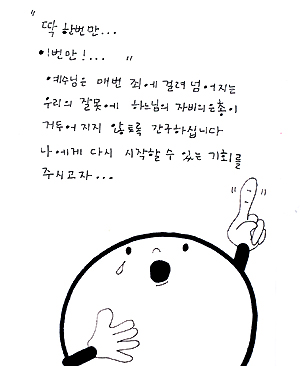 "
딱 한번만...
이번만!... "
예수님은 매번 죄에 걸려 넘어지는
우리의 잘못에 하느님의 자비의 은총이
거두어 지지 않도록 간구하십니다
나에게 다시 시작할 수 있는 기회를
주시고자...